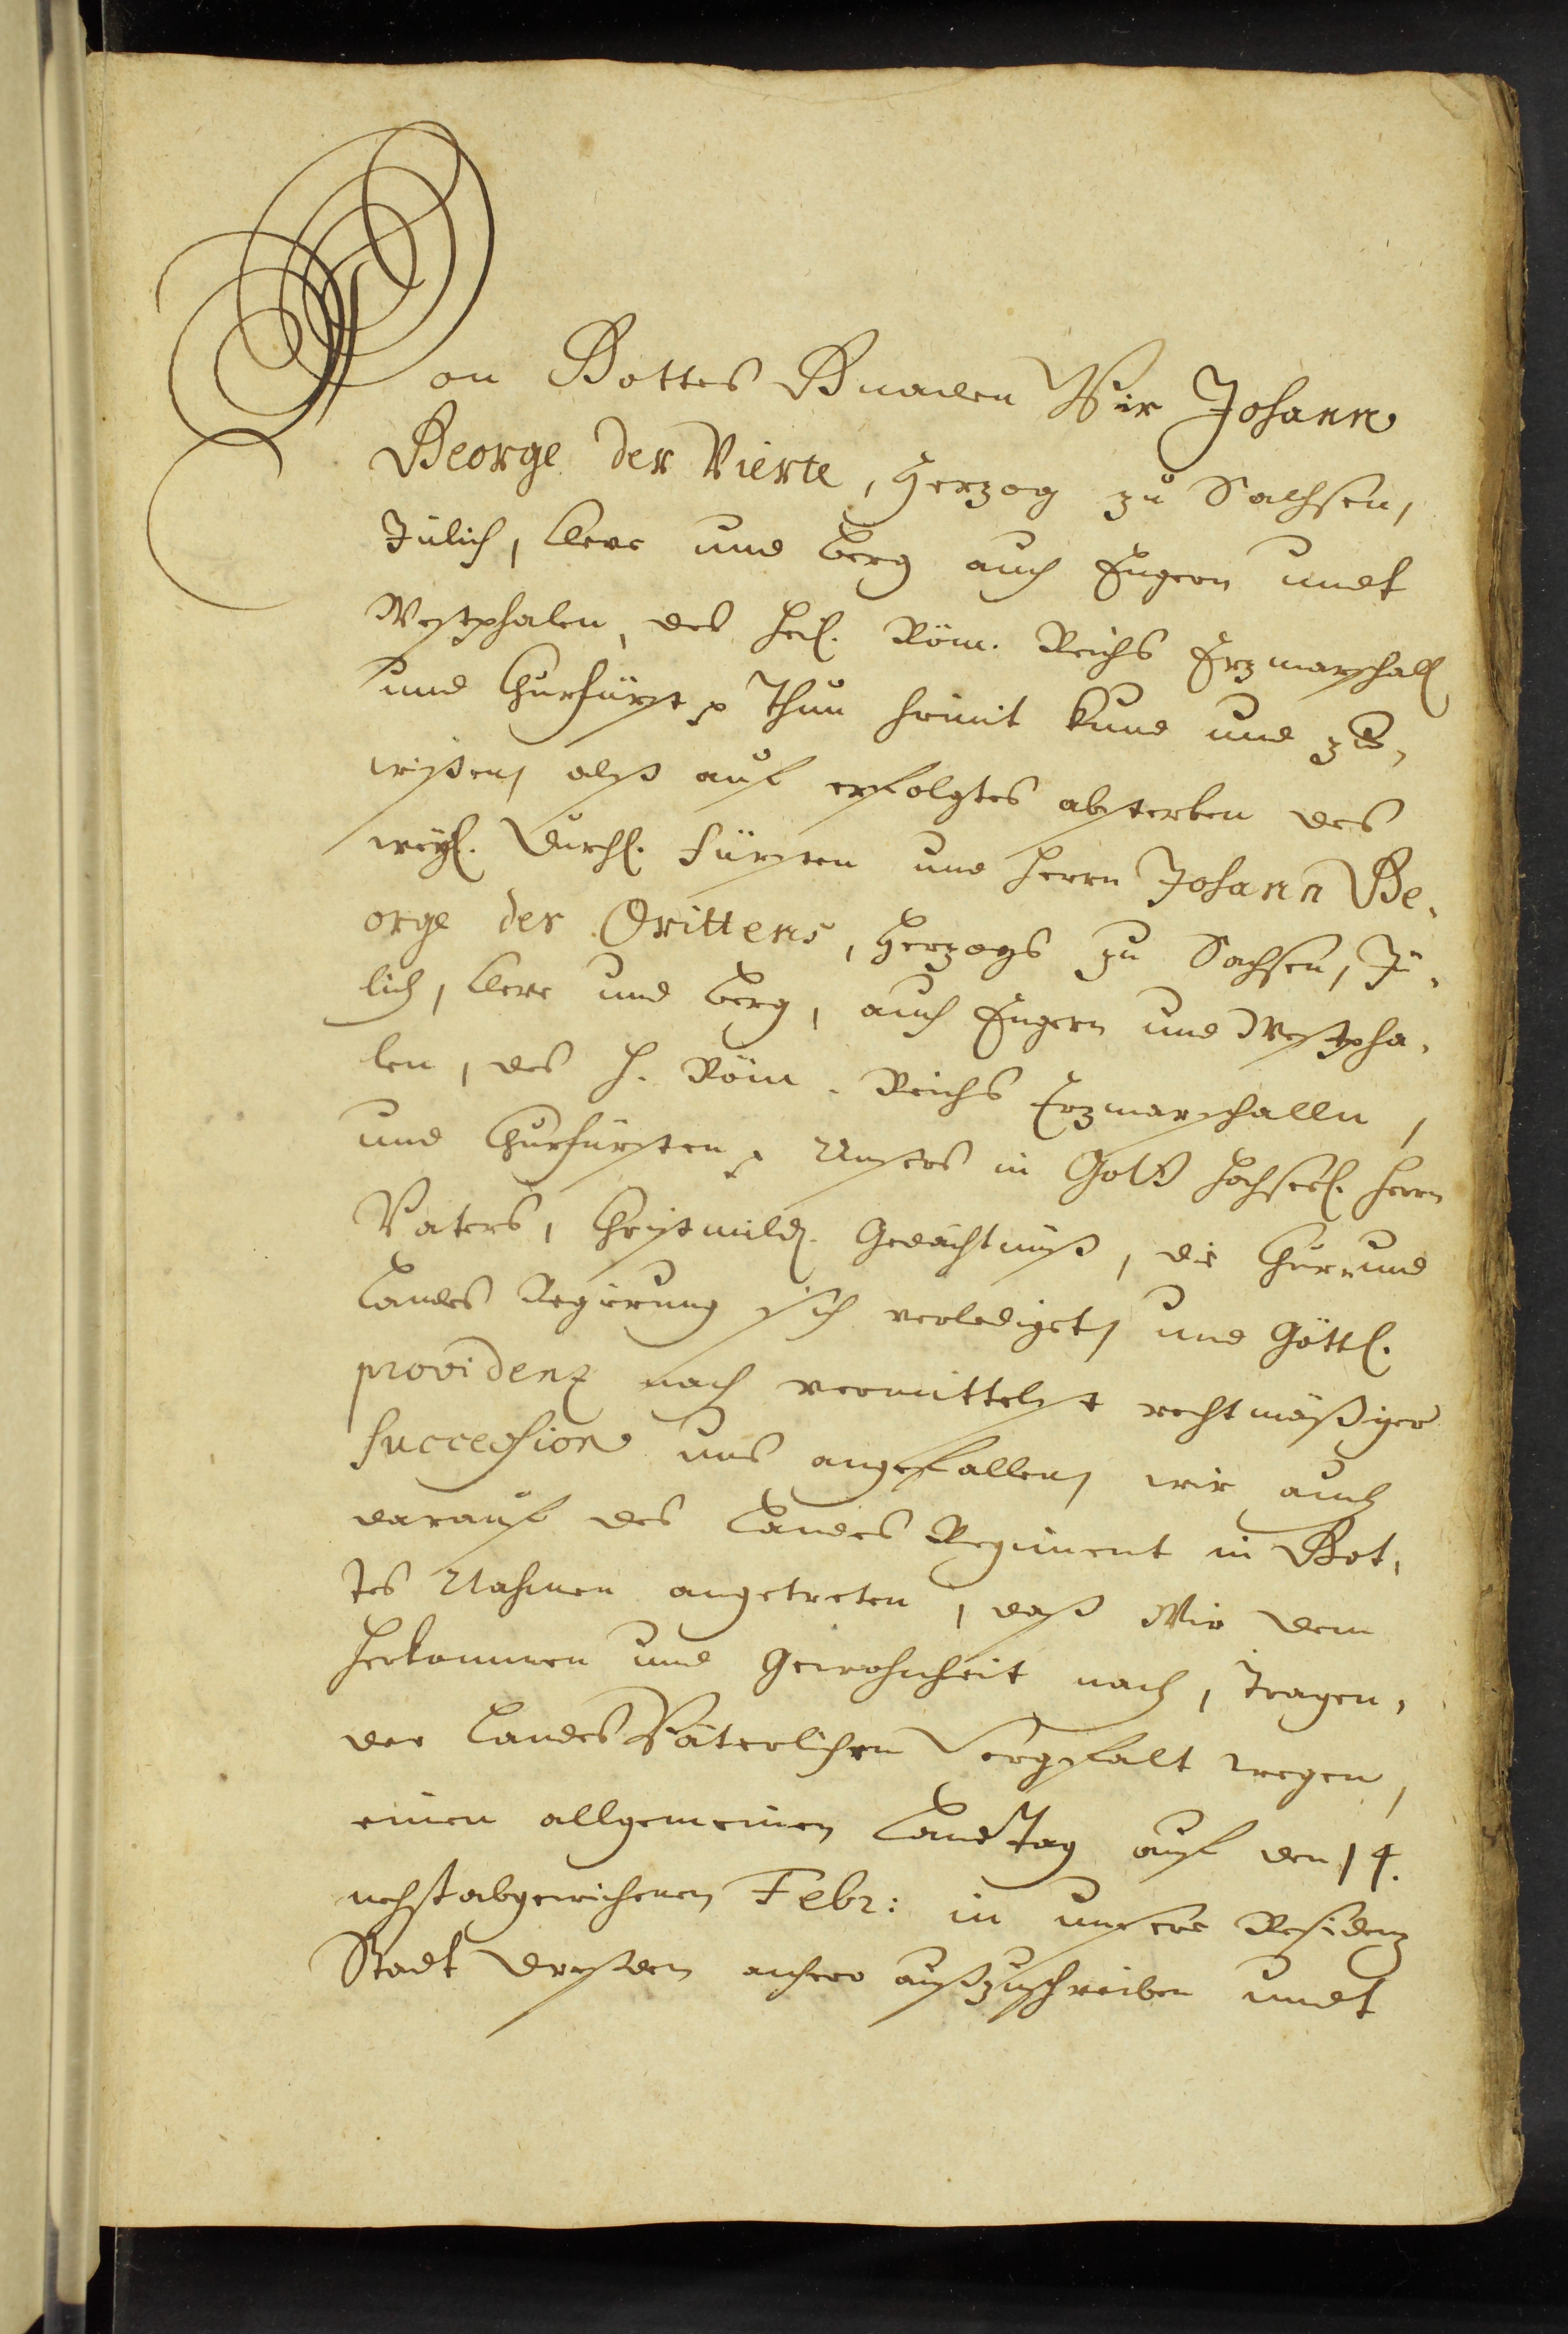 Von Gottes Gnaden Wir Johann
George der Vierte, Herzog zu Sachsen,
Jülich, Cleve und Berg auch Engern undt
Westphalen, des Heil. Röm. Reichs Erzmarschall
und Churfürst p Thun hiemit kund und zu
wißen, alß auf erfolgtes absterben des
weyl. Durchl. Fürsten und Herrn Johann Ge-
orge des Drittens, Herzogs zu Sachsen, Jü-
lich, Cleve und Berg, auch Engern und Westpha-
len, des H. Röm. Reichs Erzmarschalln,
und Churfürsten p Unsers in Gott hochseel. Herrn
Vaters, Christmild. Gedächtnüß, die Chur- und
Landes Regierung sich verlediget, und Göttl.
providenz nach vermittelst rechtmäßiger
Succession uns angefallen, wir auch
darauf des Landes Regiment in Got-
tes Nahmen angetreten, daß Wir dem
Herkommen und Gewohnheit nach, tragen-
der Landes Väterlichen Sorgfalt wegen,
einen allgemeinen LandTag auf den 14.
nechstabgewichenen Febr: in unsere Residenz
Stadt Dreßden anhero außzuschreiben undt